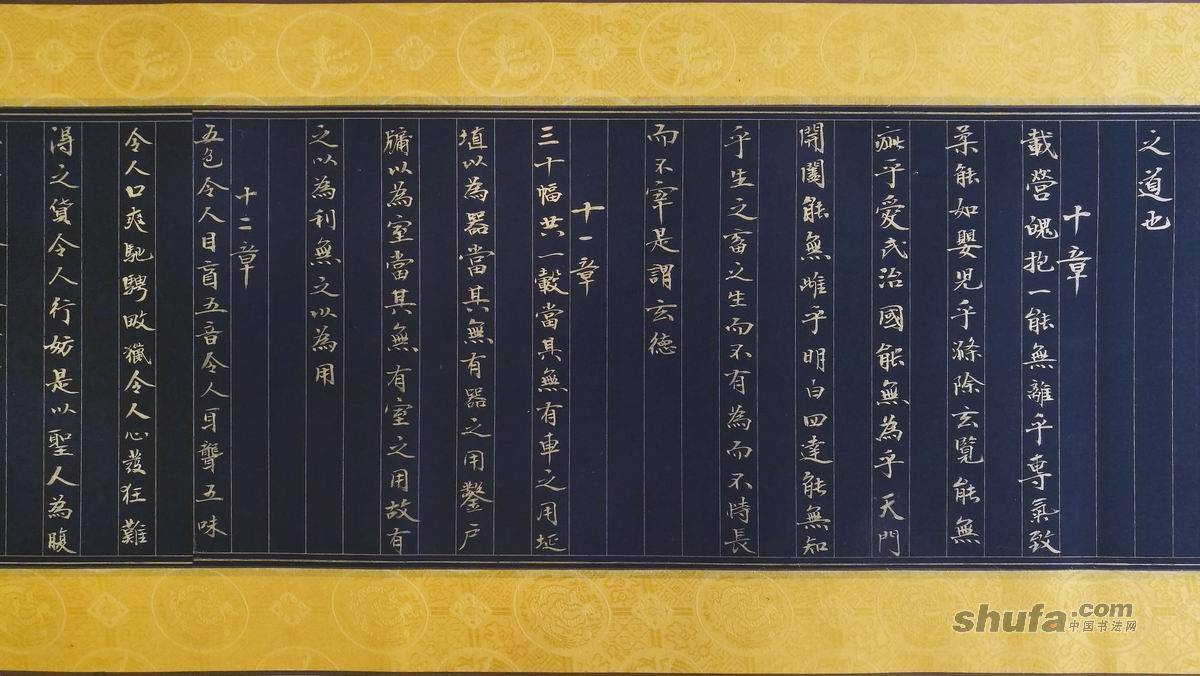 之道也
十章
載營魄抱一能無離乎專氣致
柔能如嬰兒乎滌除玄覽能無
疵乎愛民治國能無為乎天門
開闔能無雌乎明白四達能無知
乎生之畜之生而不有為而不恃長
而不宰是謂玄德
十一章
三十幅共一轂當其無有車之用埏
埴以為器當其無有器之用鑿戶
牖以為室當其無有室之用故有
之以為利無之以為用
十二章
五色令人目盲五音令人耳聾五味
令人口爽馳騁畋獵令人心發狂難
得之貨令人行妨是以聖人為腹
shufa.com
中国书法网